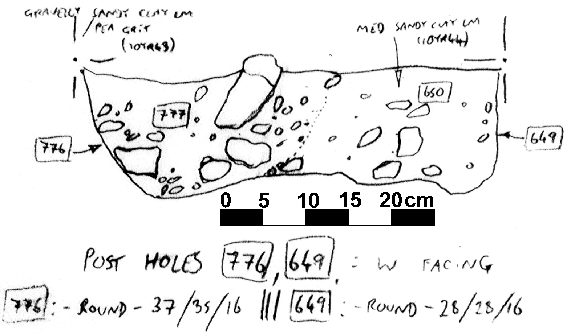 GRAVELLY SANDY CLAY LM
PEA GRIT
(10YR43)
MED SANDY CLAY LM
(10YR44)
777
650
776
649
0 5 10 15 20cm
POST HOLES 776, 649. : W FACING
776 :- ROUND - 37/35/16 ||| 649 :- ROUND - 28/28/16